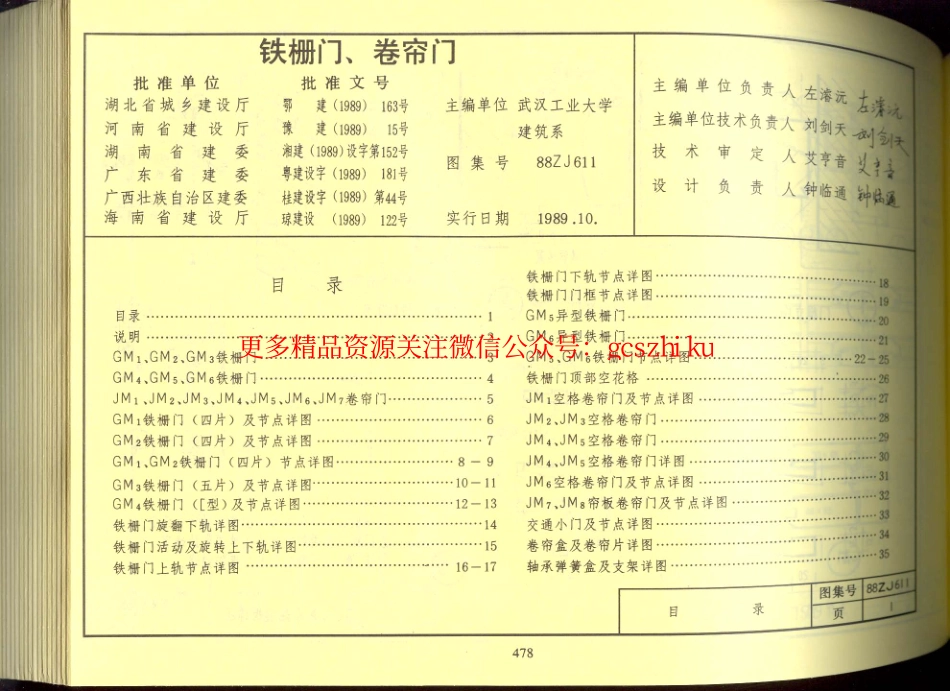 铁栅门、卷帘门
批准单位 批准文号
湖北省城乡建设厅 鄂 建（1989） 163号
河南省建设厅 豫 建（1989） 15号
湖南省建委 湘建（1989）设字第152号
广东省建委 粤建设字（1989） 181号
广西壮族自治区建委 桂建设字（1989）第44号
海南省建设厅 琼建设（1989） 122号
主编单位 武汉工业大学
建筑系
图集号 88ZJ611
实行日期 1989.10.
主编单位负责人 左濬沅 左濬沅
主编单位技术负责人 刘剑天 刘剑天
技术审定人 艾亨音 艾亨音
设计负责人 钟临通 钟临通
目录
目录 1
说明
GM₁、GM₂、GM₃铁栅门
GM₄、GM₅、GM₆铁栅门 4
JM₁、JM₂、JM₃、JM₄、JM₅、JM₆、JM₇卷帘门 5
GM₁铁栅门（四片）及节点详图 6
GM₂铁栅门（四片）及节点详图 7
GM₁、GM₂铁栅门（四片）节点详图 8-9
GM₃铁栅门（五片）及节点详图 10-11
GM₄铁栅门（[型）及节点详图 12-13
铁栅门旋翻下轨详图 14
铁栅门活动及旋转上下轨详图 15
铁栅门上轨节点详图 16-17
铁栅门下轨节点详图 18
铁栅门门框节点详图 19
GM₅异型铁栅门 20
GM₆异型铁栅门 21
GM₅、GM₆铁栅门节点详图 22-25
铁栅门顶部空花格 26
JM₁空格卷帘门及节点详图 27
JM₂、JM₃空格卷帘门 28
JM₄、JM₅空格卷帘门 29
JM₄、JM₅空格卷帘门详图 30
JM₆空格卷帘门及节点详图 31
JM₇、JM₈帘板卷帘门及节点详图 32
交通小门及节点详图 33
卷帘盒及卷帘片详图 34
轴承弹簧盒及支架详图 35
更多精品资源关注微信公众号：gcszhiku
目录 图集号 88ZJ611
页 1
478